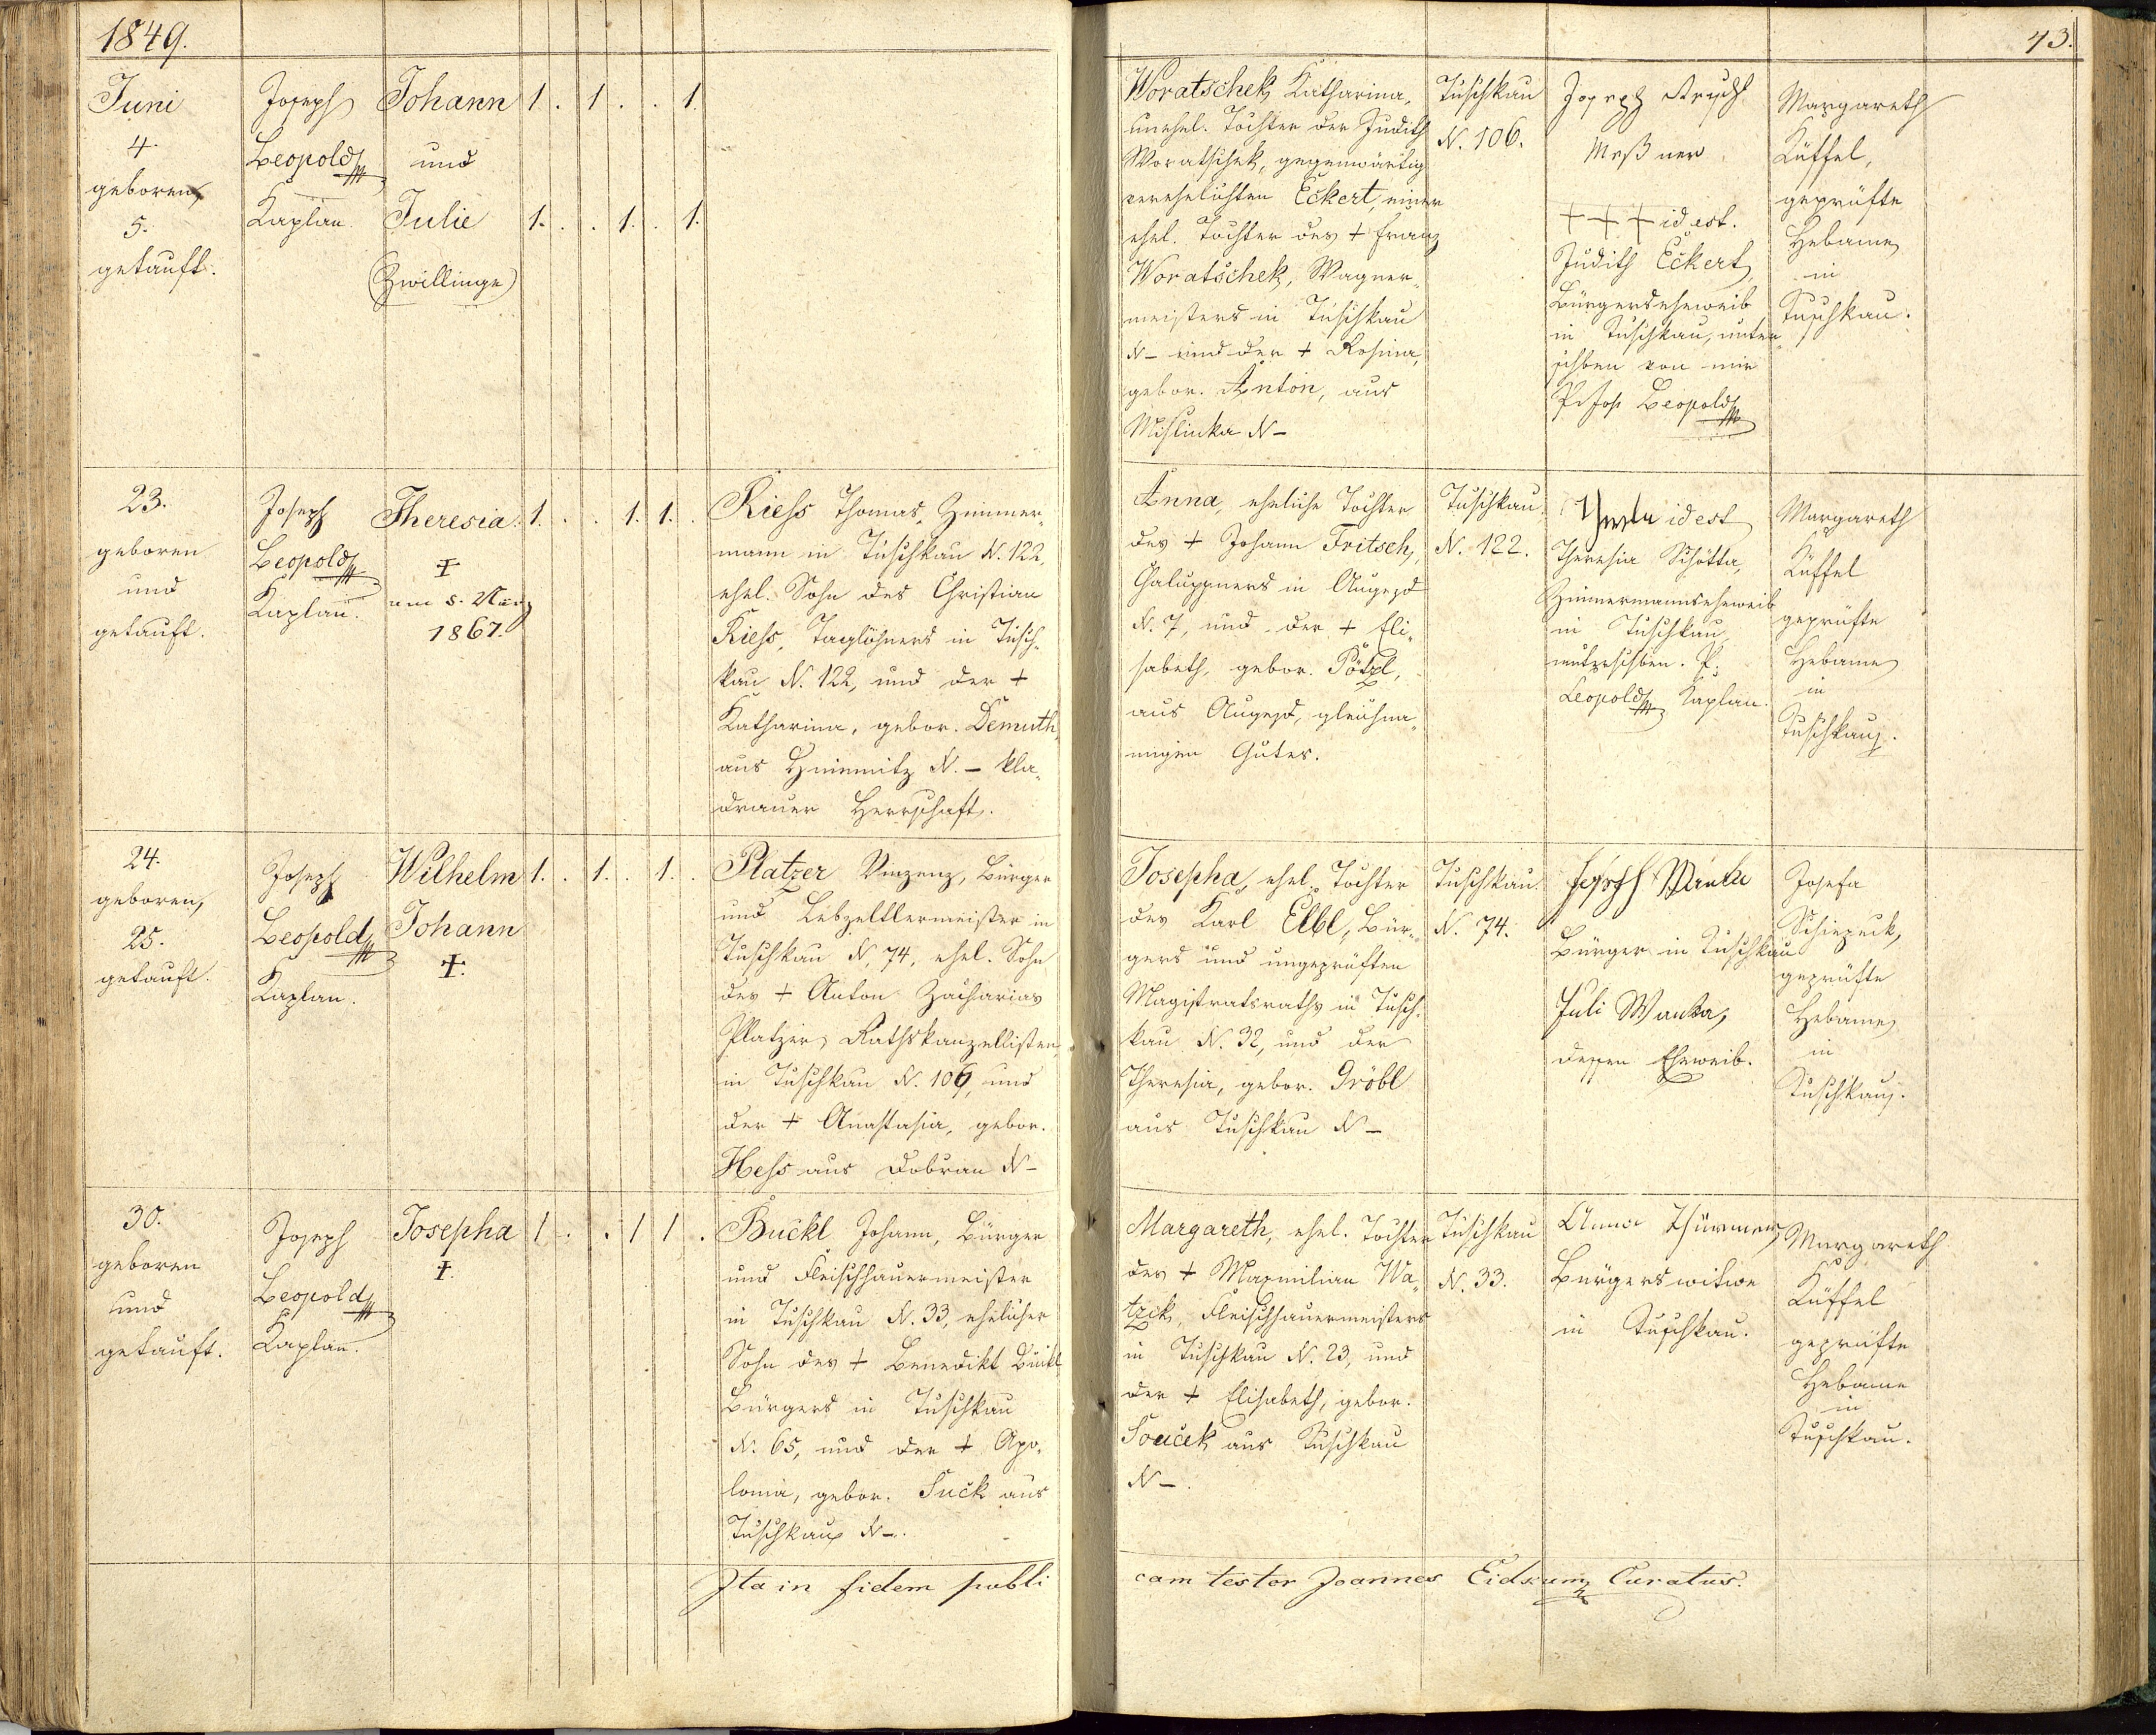 1849.
43.
Juni
4.
geboren,
5.
getauft.
Joseph
Leopold
Kaplan.
Johann
und
Julie
(Zwillinge)
1. 1. 1.
1. 1. 1.
Woratschek Katharina,
unehel. Tochter der Judith
Woratschek, gegenwärtig
verehelichten Eckert, einer
ehel. Tochter des + Franz
Woratschek, Wagner-
meisters in Tuschkau
N– und der + Rosina,
gebor. Anton, aus
Mislinka N–
Tuschkau
N. 106.
Joseph
Meßner
+ + + id est.
Judith Eckert,
Bürgerseheweib
in Tuschkau, unter-
schben von mir
P. Jos. Leopold
Margareth
Küffel,
geprüfte
Hebame
in
Tuschkau.
23.
geboren
und
getauft.
Joseph
Leopold
Kaplan.
Theresia.
+
am 5. März
1867.
1. 1. 1.
Riehs Thomas, Zimmer-
mann in Tuschkau N. 122,
ehel. Sohn des Christian
Riehs, Taglöhners in Tusch-
kau N. 122, und der +
Katharina, gebor. Demuth,
aus Hniemitz N. – Kla-
drauer Herrschaft.
Anna, eheliche Tochter
des + Johann Fritsch,
Chaluppners in Augezd
N. 7, und der + Eli-
sabeth, gebor. Pötzl,
aus Augezd, gleichna-
migen Gutes.
Tuschkau.
N. 122.
id est
Theresia Schötta,
Zimmermannseheweib
in Tuschkau
P.
Leopold Kaplan.
Margareth
Küffel
geprüfte
Hebame
in
Tuschkau.
24.
geboren,
25.
getauft.
Joseph
Leopold
Kaplan.
Wilhelm
Johann
+.
1. 1. 1.
Platzer Vinzenz, Bürger
und Lebzeltlermeister in
Tuschkau N. 74, ehel. Sohn
des + Anton Zacharias
Platzer, Rathskanzellisten,
in Tuschkau N. 106, und
der + Anastasia, gebor.
Hess aus Dobran N–
Josepha, ehel. Tochter
des Karl Elbl, Bür-
gers und ungeprüften
Magistratsraths in Tusch-
kau N. 32, und der
Theresia, gebor. Gröbl
aus Tuschkau N–
Tuschkau.
N. 74.
Joseph Wanka
Bürger in Tuschkau
Juli Wanka,
dessen Eheweib.
Josefa
geprüfte
Hebame
in
Tuschkau.
30.
geboren
und
getauft.
Joseph
Leopold
Kaplan.
Josepha
+.
1 . . 1 1 .
Buckl Johann, Bürger
und Fleischhauermeister
in Tuschkau N. 33, ehelicher
Sohn des + Benedikt Buckl
Bürgers in Tuschkau
N. 65, und der + Apo-
lonia, gebor. Suck aus
Tuschkau N–.
Margareth, ehel. Tochter
des + Maxmilian Wa-
tzek, Fleischhauermeisters
in Tuschkau N. 23, und
der + Elisabeth, gebor.
Souček aus Tuschkau
N–.
Tuschkau
N. 33.
Anna Thürmer,
Bürgerswitwe
in Tuschkau.
Margareth
Küffel
geprüfte
Hebame
in
Tuschkau.
Ita in fidem publi
cam testor Joannes Eidkum Curatus.